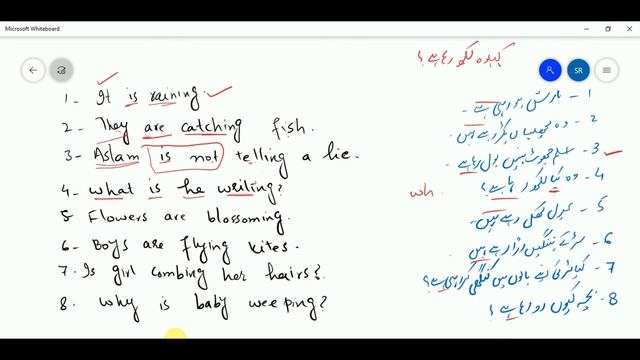 Microsoft Whiteboard
SR
کیا وہ لکھ رہا ہے؟
1- It is raining.
2- They are catching fish.
3- Aslam is not telling a lie.
4- what is he writing?
5- Flowers are blossoming.
6- Boys are flying kites.
7. Is girl combing her hairs?
8. why is baby weeping?
1- بارش ہو رہی ہے
2- وہ مچھلیاں پکڑ رہے ہیں
3- اسلم جھوٹ نہیں بول رہا ہے
4- وہ کیا لکھ رہا ہے؟
wh
5- پھول کھل رہے ہیں
6- لڑکے پتنگیں اڑا رہے ہیں
7- کیا لڑکی اپنے بالوں میں کنگھی کر رہی ہے؟
8- بچہ کیوں رو رہا ہے؟